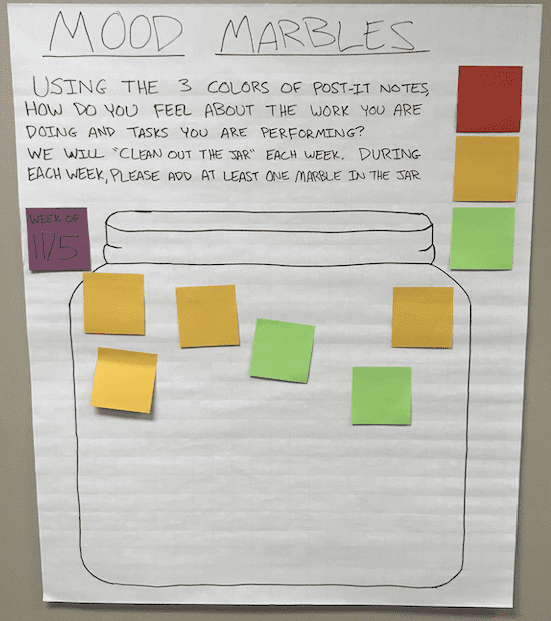 MOOD MARBLES
USING THE 3 COLORS OF POST-IT NOTES,
HOW DO YOU FEEL ABOUT THE WORK YOU ARE
DOING AND TASKS YOU ARE PERFORMING?
WE WILL "CLEAN OUT THE JAR" EACH WEEK. DURING
EACH WEEK, PLEASE ADD AT LEAST ONE MARBLE IN THE JAR
WEEK OF
11/5